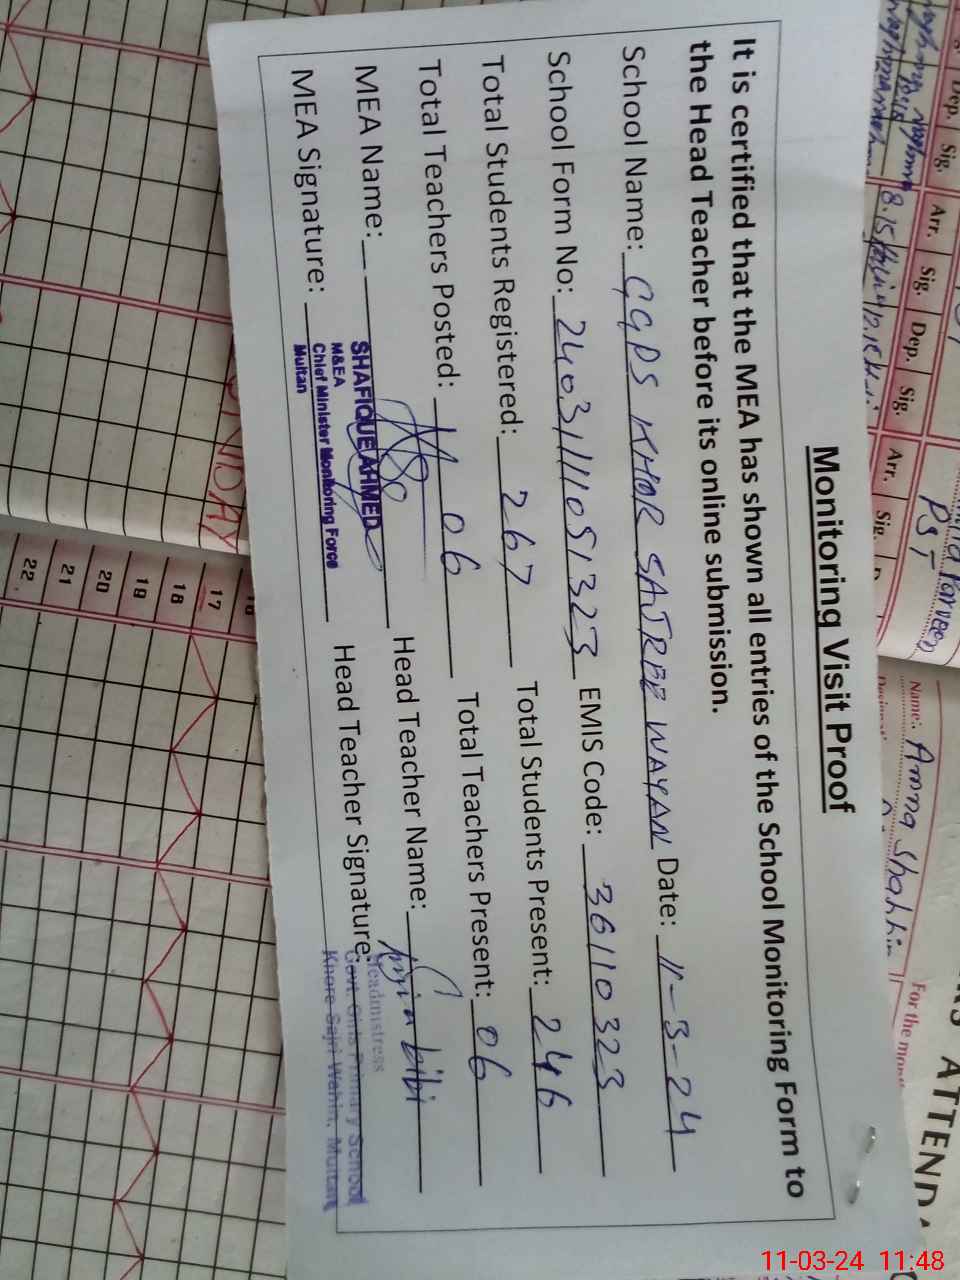 Monitoring Visit Proof
It is certified that the MEA has shown all entries of the School Monitoring Form to
the Head Teacher before its online submission.
School Name: GGPS KHOR SAJREE WAYAN Date: 11-3-24
School Form No: 2403111051323 EMIS Code: 36110323
Total Students Registered: 267 Total Students Present: 246
Total Teachers Posted: 06 Total Teachers Present: 06
MEA Name: Head Teacher Name: bibi
SHAFIQUE AHMED
M&EA
Chief Minister Monitoring Force
Multan
MEA Signature: Head Teacher Signature:
Headmistress
Govt. Girls Primary School
Khore Sajri Wahin, Multan
Dep. Sig. Arr. Sig. Dep. Sig. Arr. Sig.
8.15
Parveen
PST
Name: Amna Shahin
For the mon
ATTENDA
17
18
19
20
21
22
11-03-24 11:48